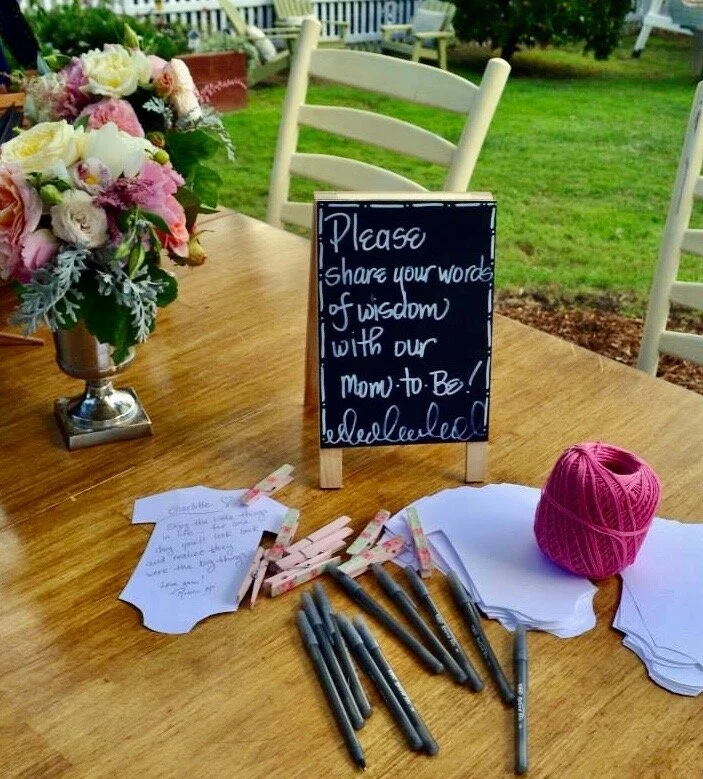 Please
share your words
of wisdom
with our
Mom to Be!
Charlotte
Enjoy the little things
in life for one
day you'll look back
and realize they
were the big things
Love you!